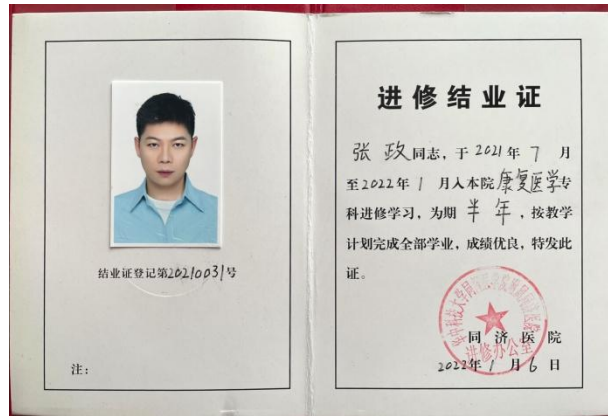 结业证登记第20210031号
注：
进修结业证
张政同志，于2021年7月
至2022年1月入本院康复医学专
科进修学习，为期半年，按教学
计划完成全部学业，成绩优良，特发此
证。
同济医院
进修办公室
2022年1月6日